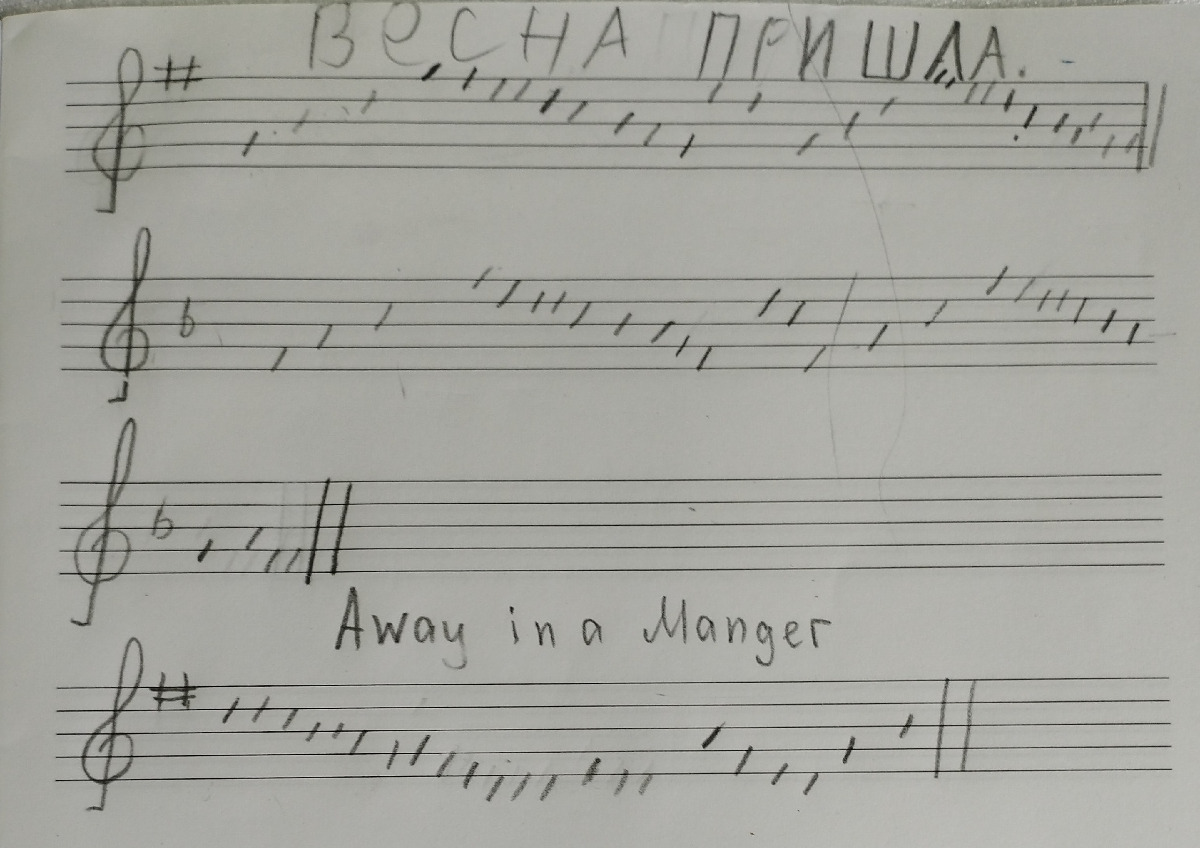 ВеСНА ПРИШЛА.
Away in a Manger